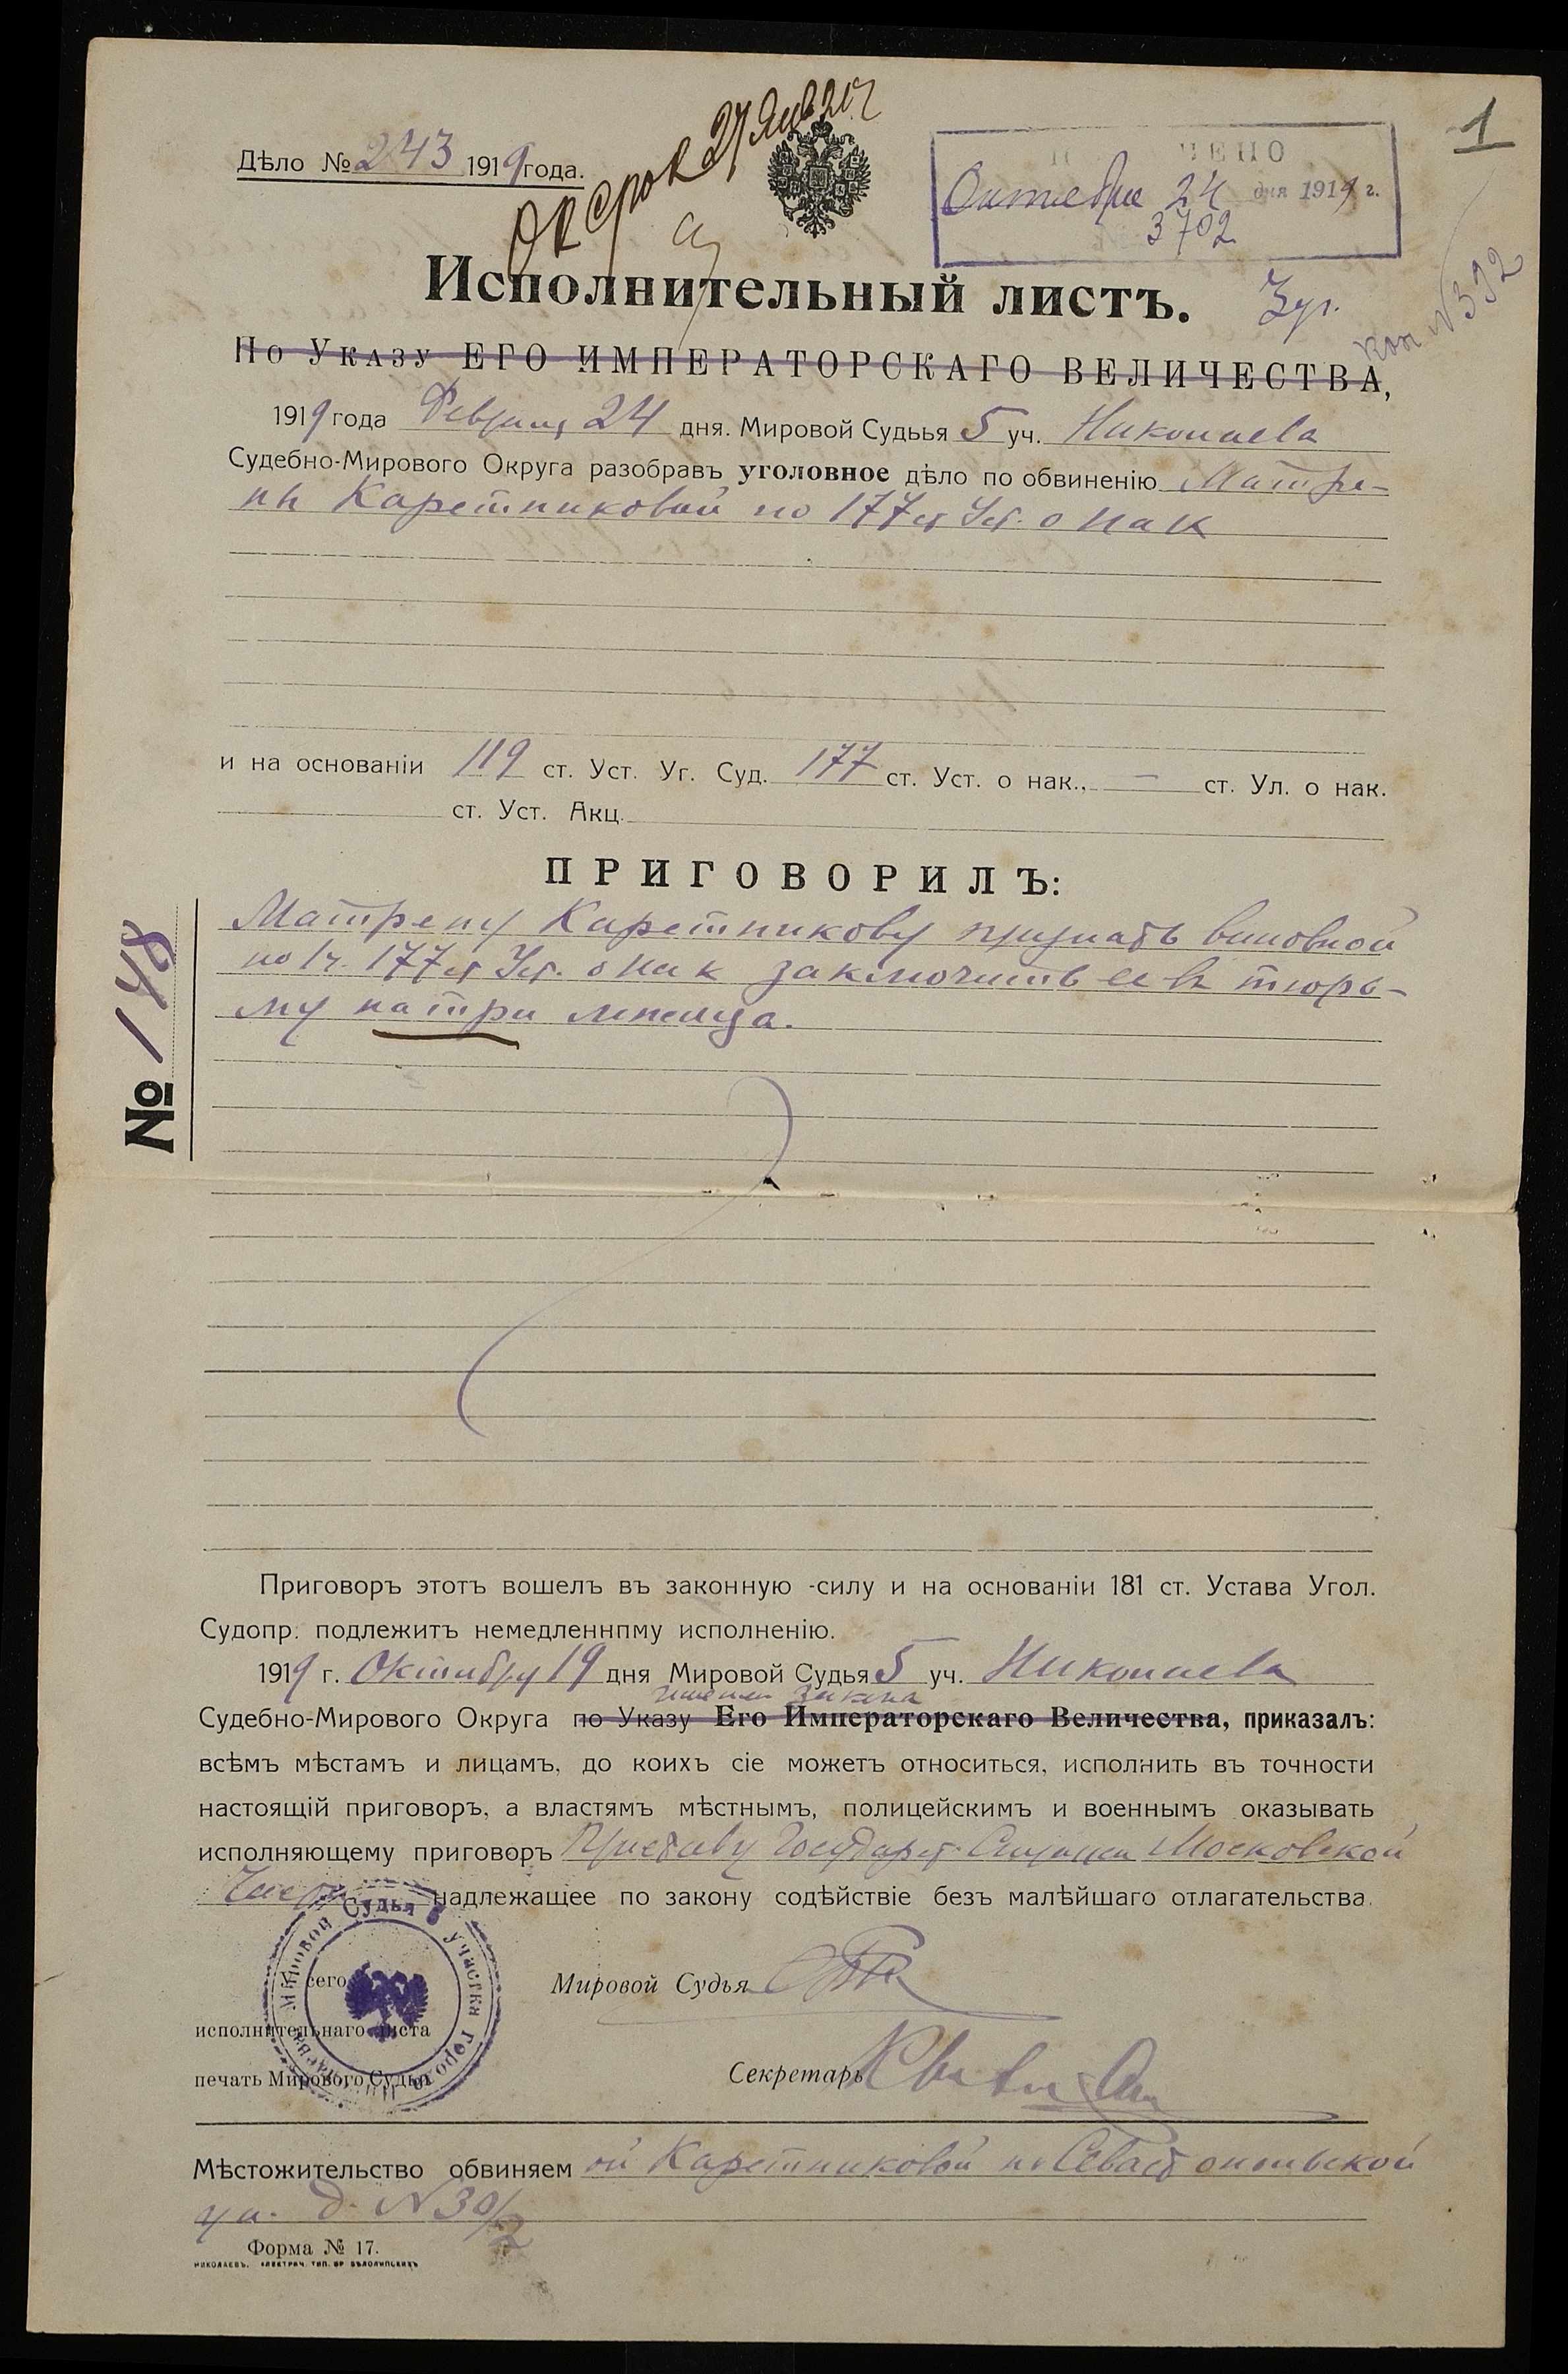 1
Дѣло № 243 1919 года.
срок 27 Января
ЧЕНО
Октября 24 дня 1919 г.
3702
№ 392
Исполнительный листъ.
По Указу ЕГО ИМПЕРАТОРСКАГО ВЕЛИЧЕСТВА,
1919 года Февраля 24 дня. Мировой Судьья 5 уч. Николаева
Судебно-Мирового Округа разобравъ уголовное дѣло по обвиненію Матре-
ны Каретниковой по 177 ст Уст. о нак
и на основаніи 119 ст. Уст. Уг. Суд. 177 ст. Уст. о нак., — ст. Ул. о нак.
ст. Уст. Акц.
ПРИГОВОРИЛЪ:
Матрену Каретникову признать виновной
по 1 ч. 177 ст Уст. о нак заключить ее в тюрь-
му на три месяца.
№ 148
Приговоръ этотъ вошелъ въ законную -силу и на основаніи 181 ст. Устава Угол.
Судопр. подлежитъ немедленнпму исполненію.
1919 г. Октября 19 дня Мировой Судья 5 уч. Николаева
именем закона
Судебно-Мирового Округа по Указу Его Императорскаго Величества, приказалъ:
всѣмъ мѣстамъ и лицамъ, до коихъ сіе можетъ относиться, исполнить въ точности
настоящій приговоръ, а властямъ мѣстнымъ, полицейскимъ и военнымъ оказывать
исполняющему приговоръ Приставу Государст. Стражи Московской
Части надлежащее по закону содѣйствіе безъ малѣйшаго отлагательства.
Мировой Судья 5 Участка Города Николаева
У сего
исполнительнаго листа
печать Мирового Судьи
Мировой Судья
Секретарь
Мѣстожительство обвиняем ой Каретниковой по Севастопольской
ул. д. № 30/2
Форма № 17.
НИКОЛАЕВЪ. ЭЛЕКТРИЧ. ТИП. БР БѢЛОЛИПСКИХЪ